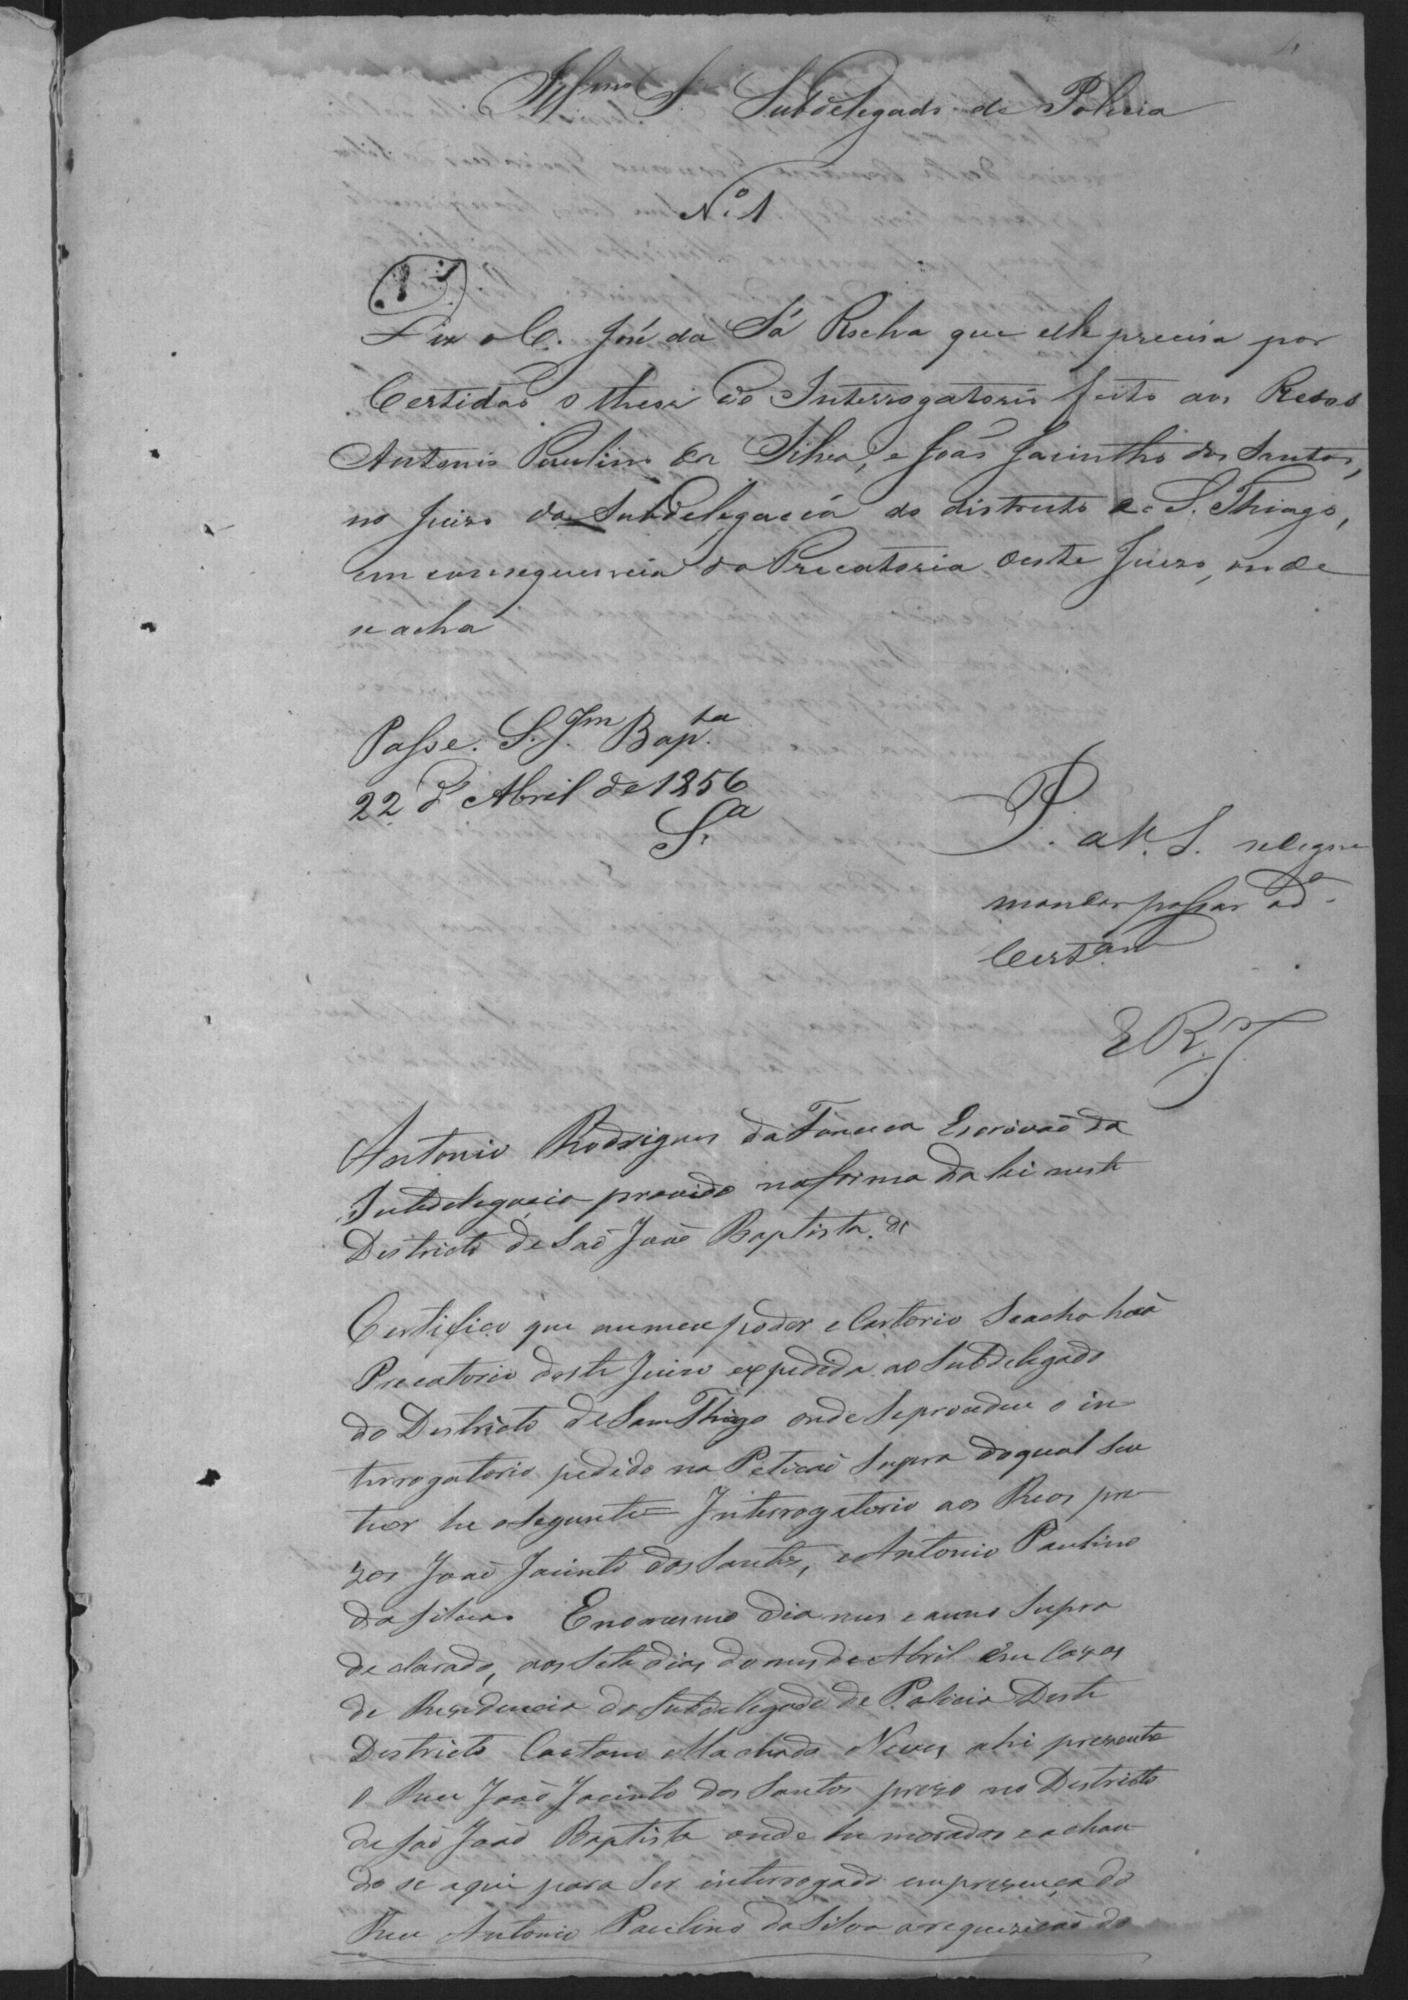 4
Illmo Sr Subdelegado de Policia
No. 1
Diz o C. José da Sá Rocha que elle precisa por
Certidaõ o theor do Interrogatorio feito aos Reos
Antonio Paulino da Silva, e Joaõ Jacintho dos Santos,
no Juizo da Subdelegacia do districto de S. Thiago,
em consequencia da Precatoria deste Juizo, onde
se acha
Passe. S. Jm Bapta
22 de Abril de 1856
Sa
P. a V. S. se digne
mandar passar a da
Certam
E R. J.
Antonio Rodrigues da Fonceca Escrivaõ da
Subdelegacia provido na forma da lei neste
Districto de Saõ Joaõ Baptista. &
Certifico que em meu poder e Cartorio Seacha huã
Precatorio deste Juizo expedida ao Subdelegado
do Districto de Sam Thiago onde Seprocedeu o in
terrogatorio pedido na Peticaõ Supra do qual seu
theor he o Seguinte = Interrogatorio aos Reos pre
zos Joaõ Jacinto dos Santos, e Antonio Paulino
da Silva = Eno mesmo dia mes e anno Supra
declarado, aos Sete dias do mes de Abril em Cazas
de Rezidencia do Subdelegado de Policia Deste
Districto Caetano Machado Neves ahi prezente
o Reu Joaõ Jacinto dos Santos prezo no Districto
de Saõ Joaõ Baptista onde he morador e achan
do se aqui para Ser interrogado em prezença do
Reu Antonio Paulino da Silva a requizicaõ do